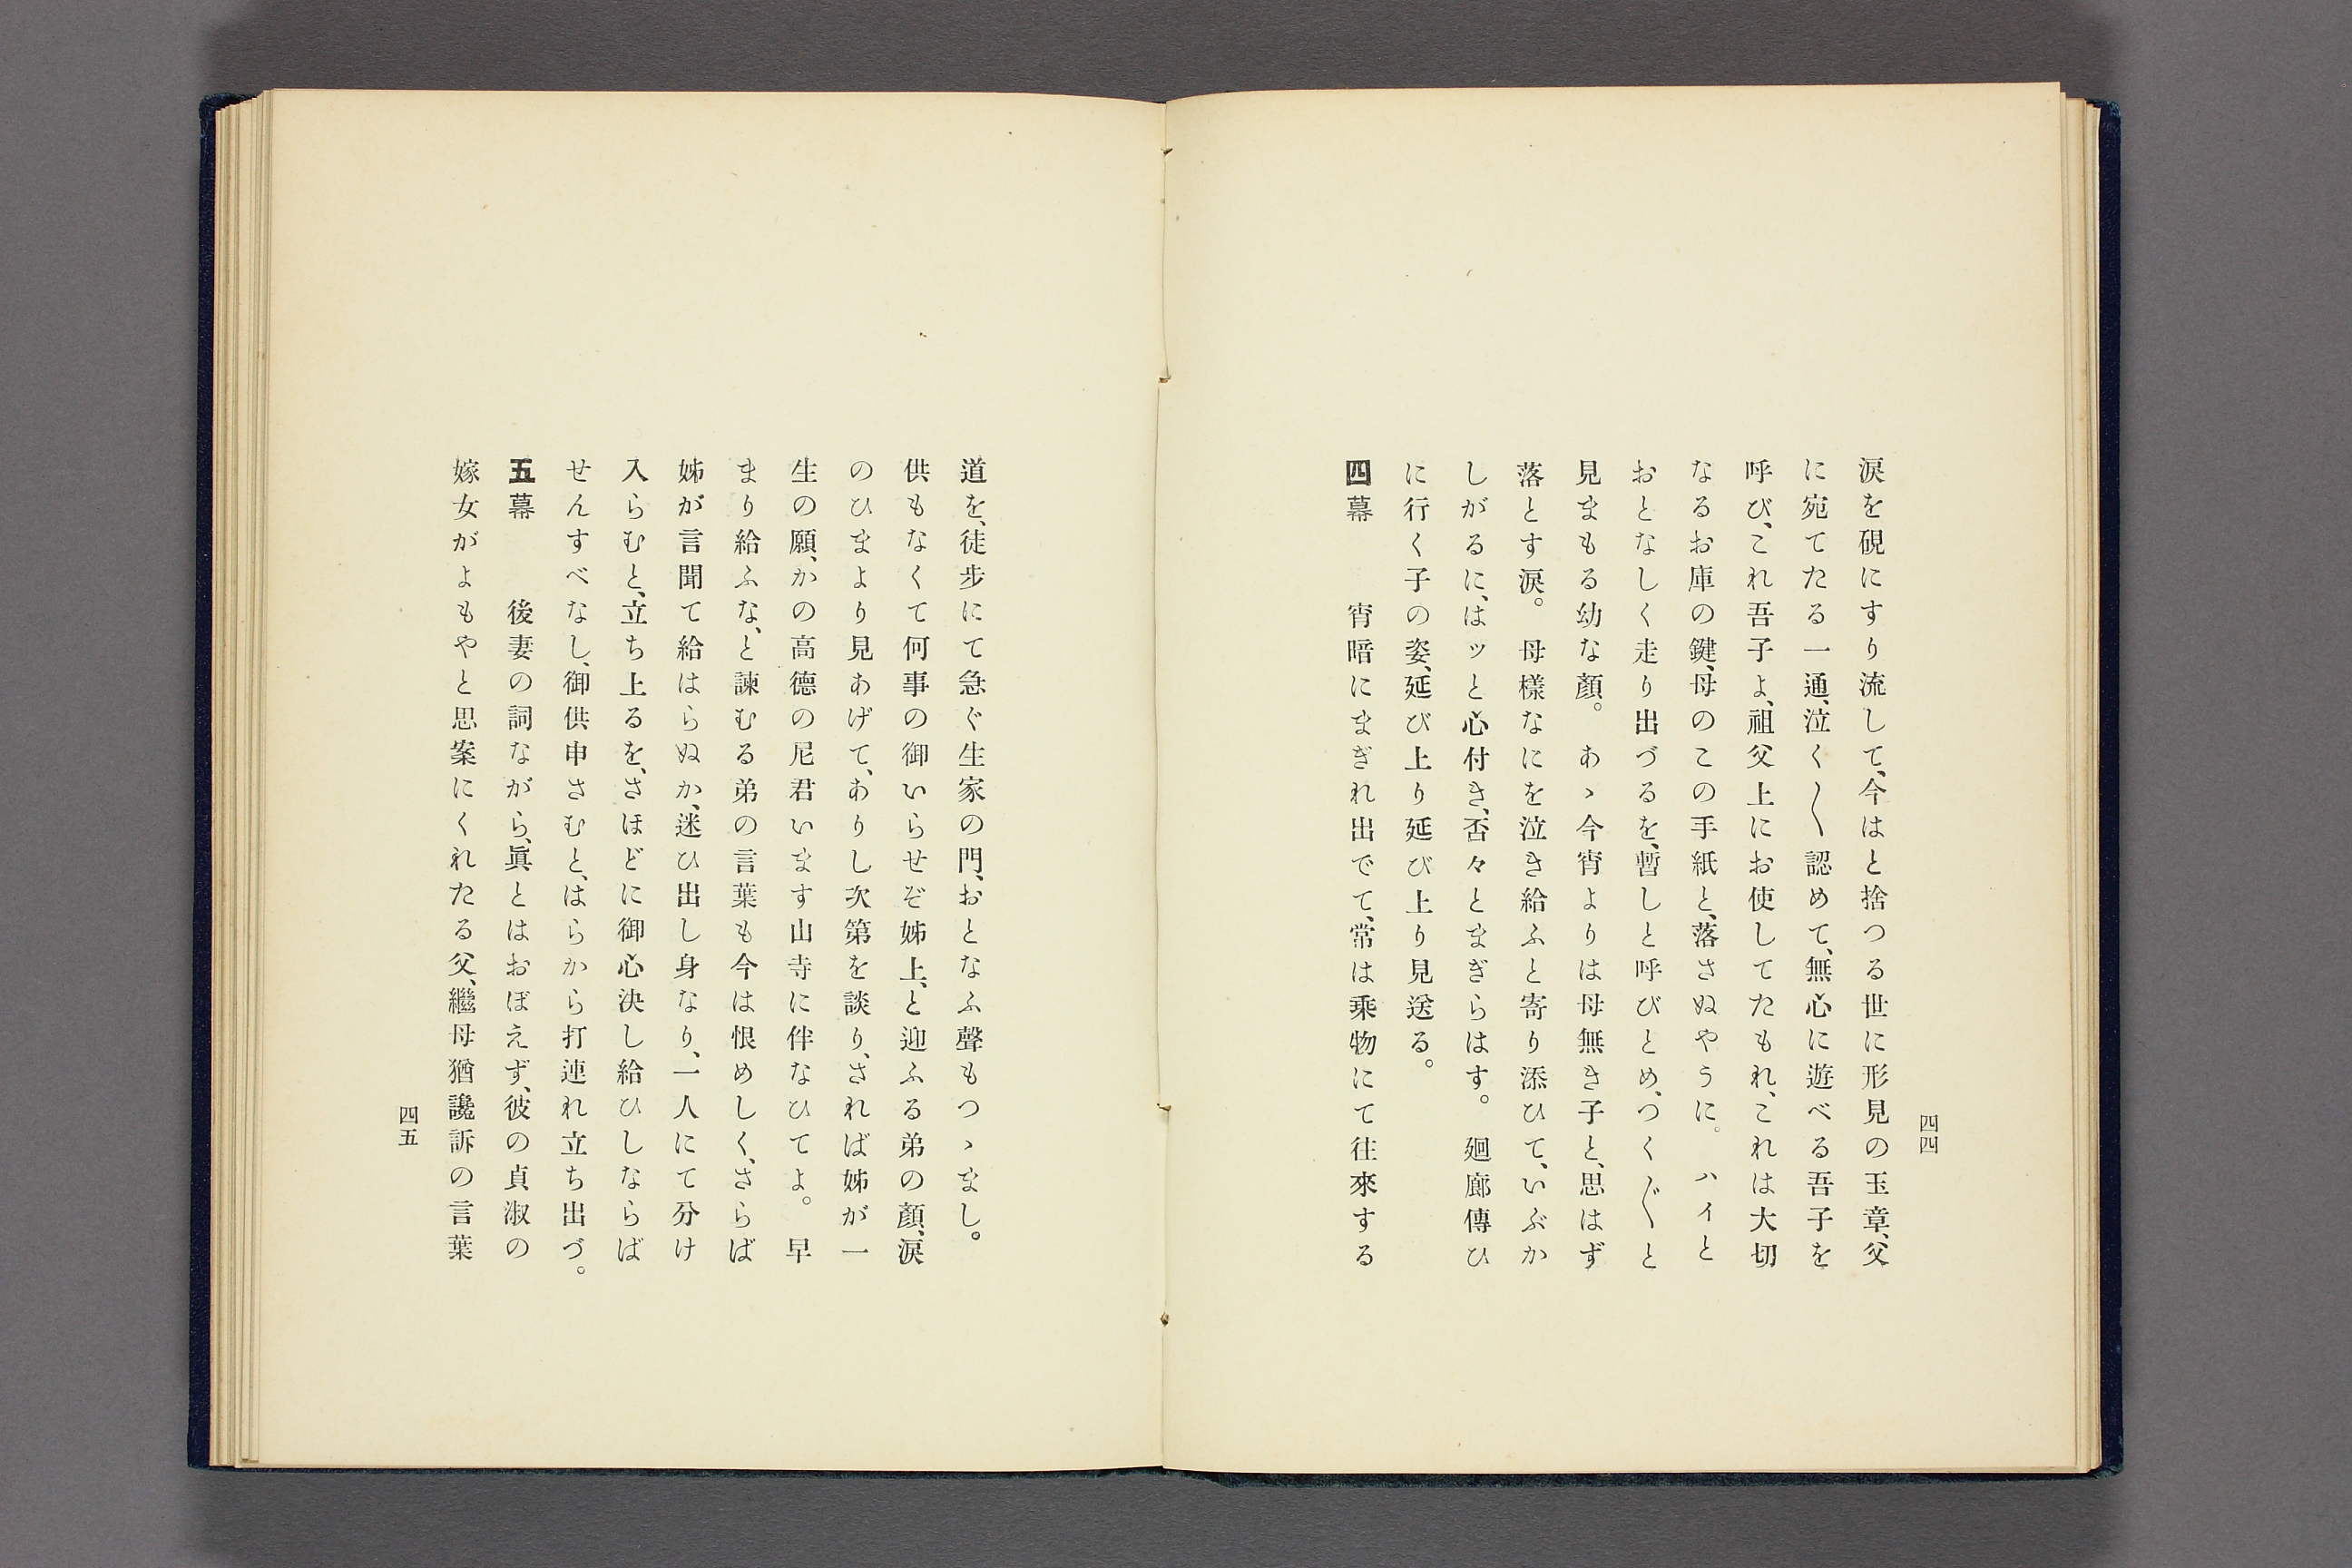 涙を硯にすり流して、今はと捨つる世に形見の玉章、父
に宛てたる一通、泣く〳〵認めて、無心に遊べる吾子を
呼び、これ吾子よ、祖父上にお使してたもれ、これは大切
なるお庫の鍵、母のこの手紙と、落さぬやうに。ハイと
おとなしく走り出づるを、暫しと呼びとめ、つく〴〵と
見まもる幼な顏。あゝ今宵よりは母無き子と、思はず
落とす涙。母樣なにを泣き給ふと寄り添ひて、いぶか
しがるに、はツと心付き、否々とまぎらはす。廻廊傳ひ
に行く子の姿、延び上り延び上り見送る。
四幕　宵暗にまぎれ出でて、常は乘物にて往來する
四四
道を、徒步にて急ぐ生家の門、おとなふ聲もつゝまし。
供もなくて何事の御いらせぞ姊上、と迎ふる弟の顏、涙
のひまより見あげて、ありし次第を談り、されば姊が一
生の願、かの高德の尼君います山寺に伴なひてよ。早
まり給ふな、と諫むる弟の言葉も今は恨めしく、さらば
姊が言聞て給はらぬか、迷ひ出し身なり、一人にて分け
入らむと、立ち上るを、さほどに御心決し給ひしならば
せんすべなし、御供申さむと、はらから打連れ立ち出づ。
五幕　後妻の詞ながら、眞とはおぼえず、彼の貞淑の
嫁女がよもやと思案にくれたる父、繼母猶讒訴の言葉
四五